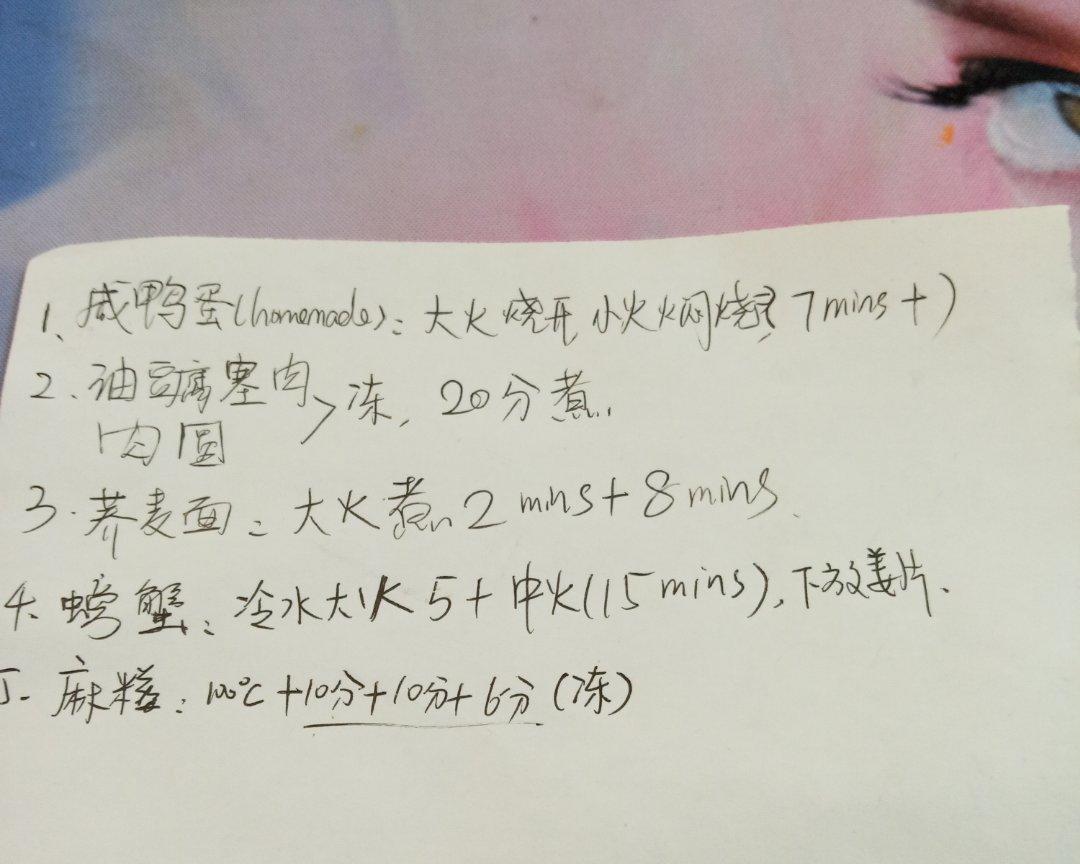 1、咸鸭蛋(homemade):大火烧开,小火焖烧(7mins+)
2.油豆腐塞肉>冻,20分煮.
肉圆
3.荞麦面:大火煮2mins+8mins.
4.螃蟹:冷水大火5+中火(15mins),下放姜片.
5.麻糍:100℃+10分+10分+6分(冻)